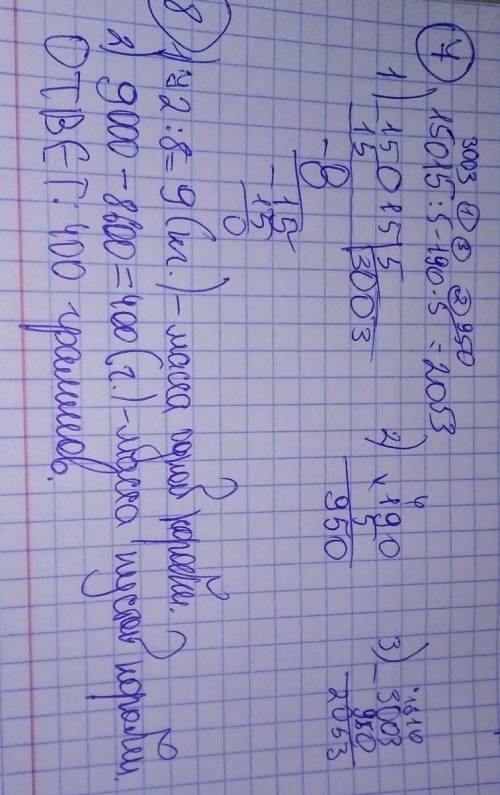 7
3003 1 3 2 950
15015:5-190·5=2053
1) 15015 5
15 3003
-0
-15
15
0
2) 4
×190
5
950
3)
-3003
950
2053
8
1) 72:8=9(кг.)-масса одной коробки.
2) 9000-8600=400(г.)-масса пустой коробки.
ОТВЕТ: 400 граммов.